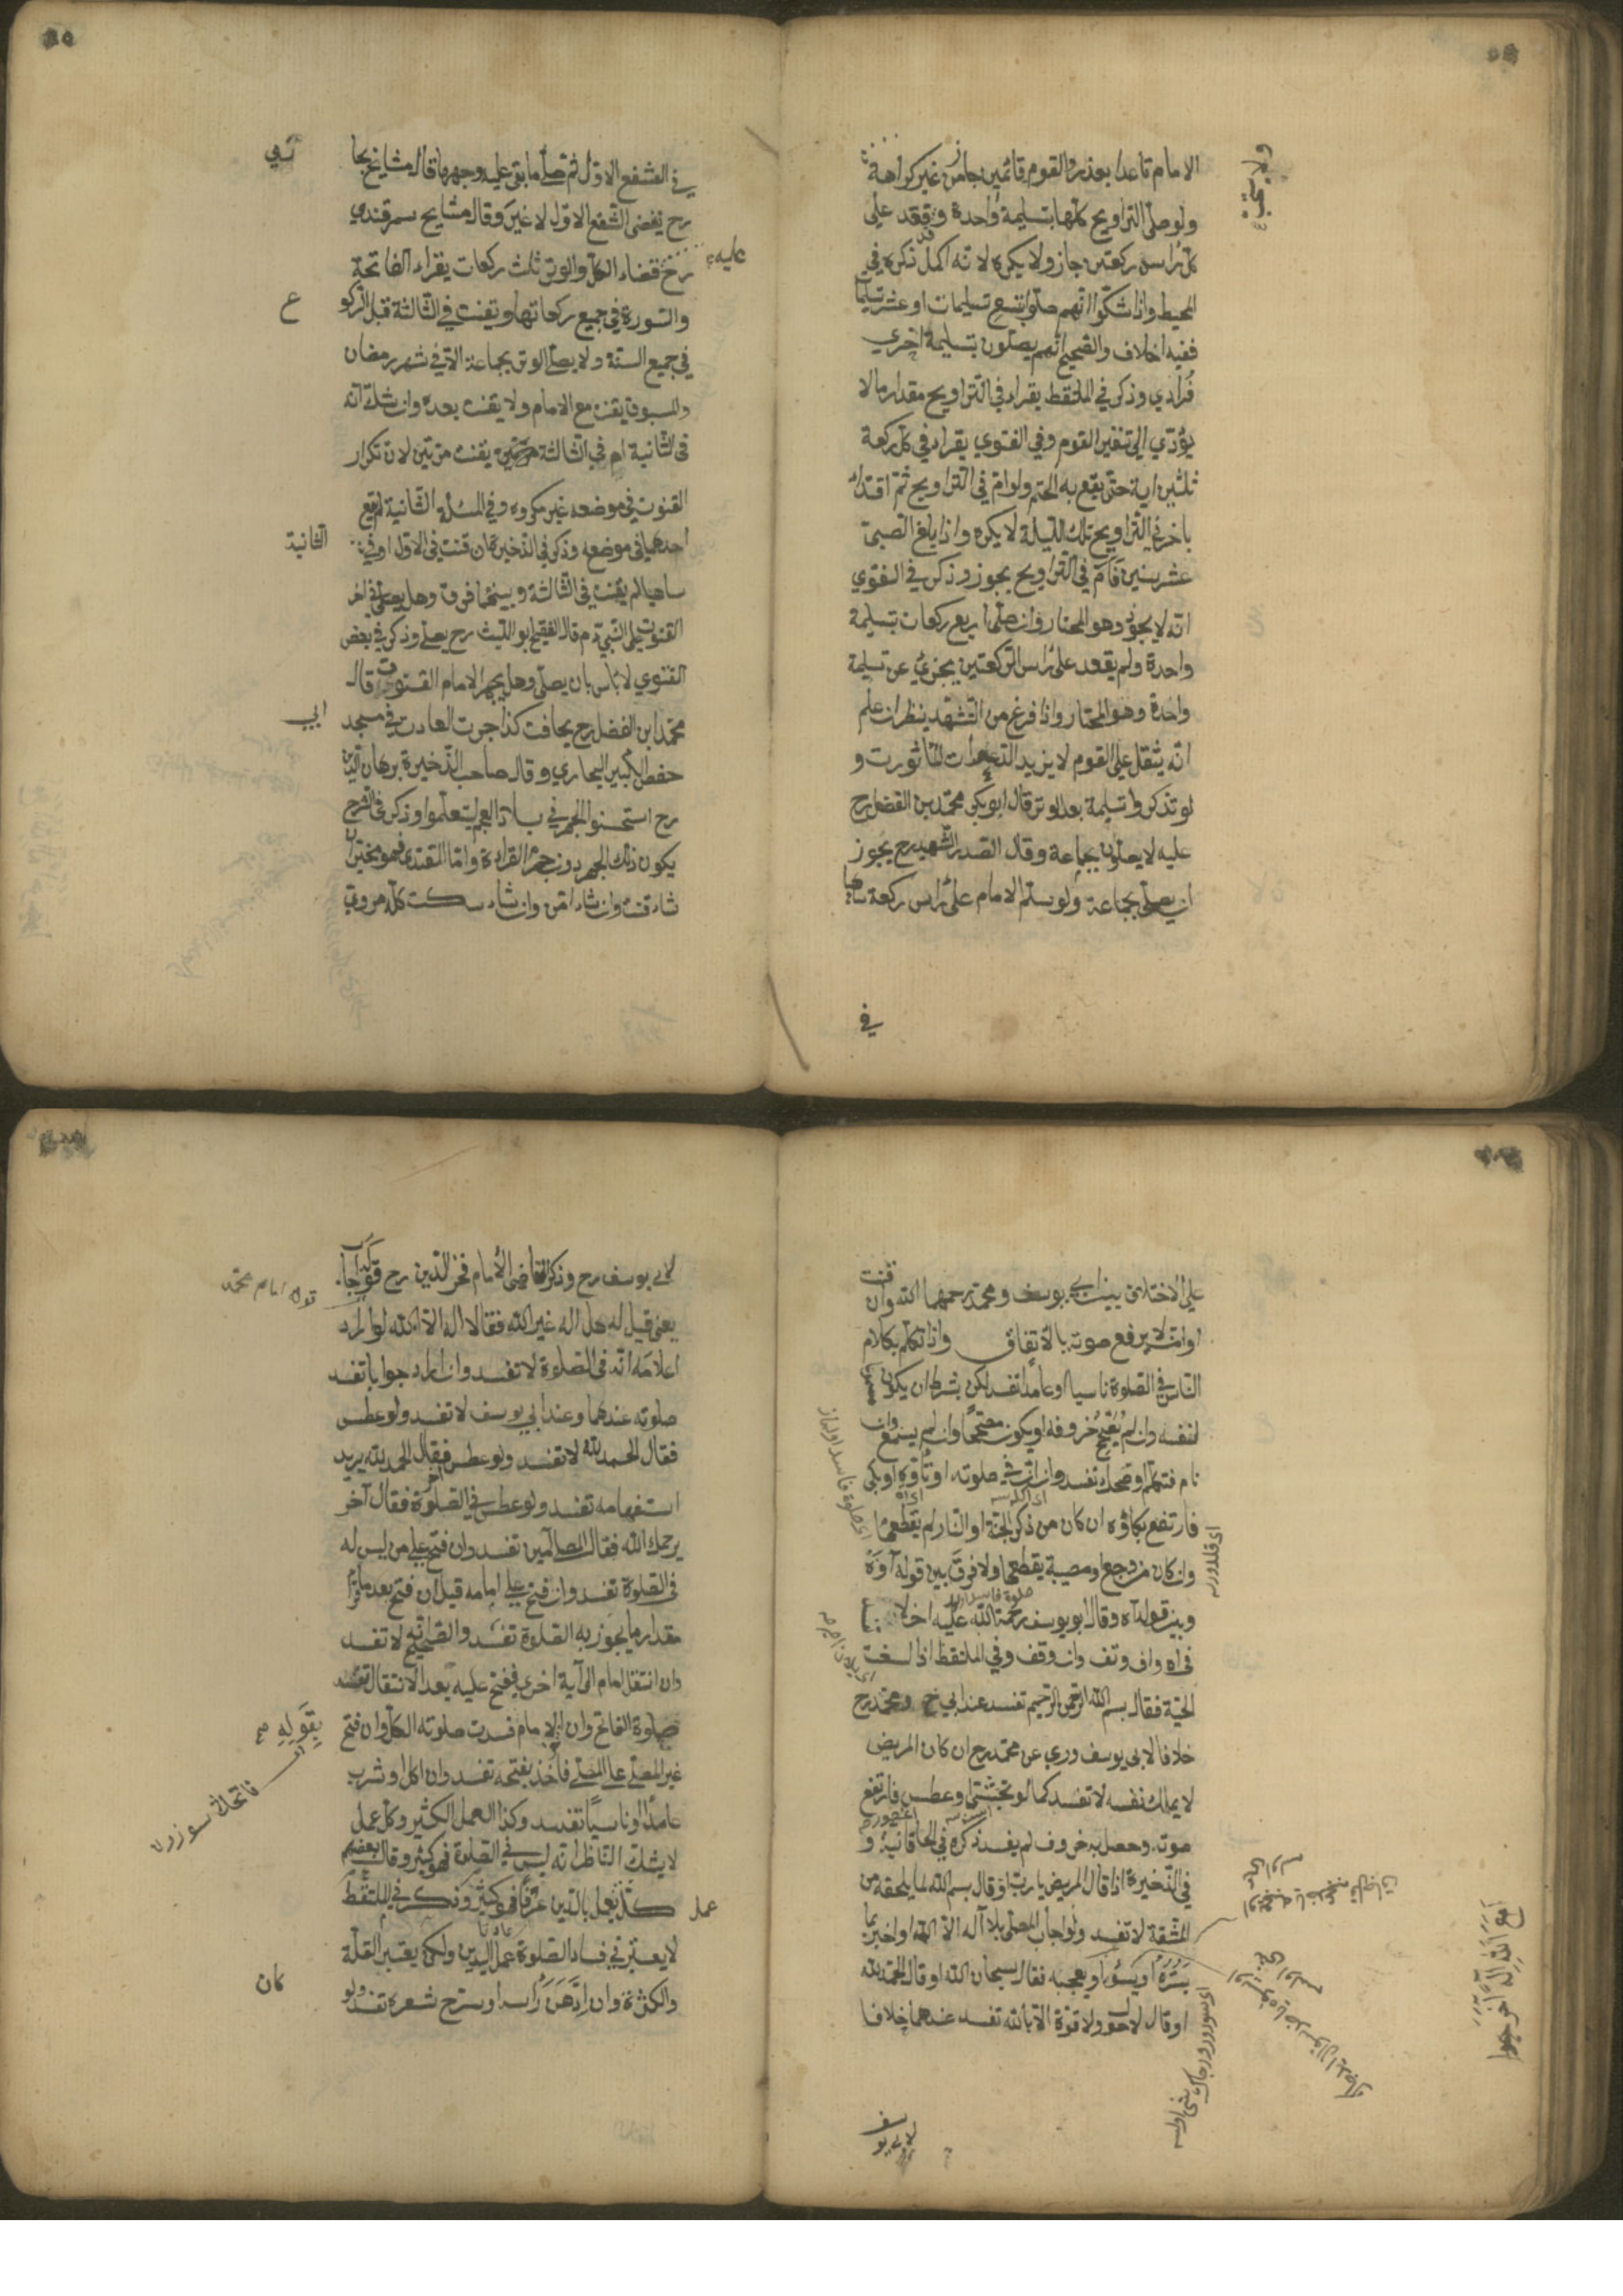 الامام قاعدا بعذر والقوم قائمين جاز من غير كراهة
ولو صلى التراويح كلها بتسليمة واحدة وقعد على
كل راس ركعتين جاز ولا يكره لانه اكمل ذكره في
المحيط واذا شكوا انهم صلوا تسع تسليمات او عشر تسليما
ففيه اختلاف والصحيح انهم يصلون بتسليمة اخرى
فرادي وذكر في الملتقط يقراء في التراويح مقدار ما لا
يؤدي الى تنفير القوم وفي الفتوي يقراء في كل ركعة
ثلثين اية حتى يقع به الختم ولو ام في التراويح ثم اقتدا
باخر في التراويح تلك الليلة لا يكره واذا بلغ الصبى
عشر سنين فام في التراويح يجوز وذكر في الفتوي
انه لا يجوز وهو المختار وان صلى اربع ركعات بتسليمة
واحدة ولم يقعد على راس الركعتين يجزي عن تسليمة
واحدة وهو المختار واذا فرغ من التشهد ينظر ان علم
انه يثقل على القوم لا يزيد الدعوات الماثورت و
لو تذكروا تسليمة بعد الوتر قال ابو بكر محمد بن الفضل رح
عليه لا يصلون بجماعة وقال الصدر الشهيد رح يجوز
ان يصلى بجماعة ولو سلم الامام على راس ركعة ساهيا
في
في الشفع الاول ثم صلى ما بقى على وجهها قال مشايخ بخا
رح يقضى الشفع الاول لا غير وقال مشايخ سمرقندي
رح قضاء الكل والوتر ثلث ركعات يقراء الفاتحة
عليه
والسورة في جميع ركعاتها ويقنت في الثالثة قبل الركو
ع
في جميع السنة ولا يصلى الوتر بجماعة الا في شهر رمضان
والمسبوق يقنت مع الامام ولا يقنت بعده وان شك انه
في الثانية ام في الثالثة يقنت مرتين لان تكرار
القنوت في موضعه غير مكروه وفي المسئلة الثانية لم يقع
احدهما في موضعه وذكر في الذخيرة ان قنت في الاول او في
الثانية
ساهيا لم يقنت في الثالثة وبينهما فرق وهل يصلى في اخر
القنوت على النبي م قال الفقيه ابو الليث رح يصلى وذكر في بعض
الفتوي لا باس بان يصلى وهل يجهر الامام القنوت قال
محمد ابن الفضل رح يخافت كذا جرت العادت في مسجد
ابي
حفص الكبير البخاري وقال صاحب الذخيرة برهان الدين
رح استحسنوا الجهر في بلاد العجم ليتعلموا وذكر في الشرح
يكون ذلك الجهر دون جهر القراءة واما المقتدى فهو مخير ان
شاء قنت وان شاء امن وان شاء سكت كل مروي
على الاختلاف بين ابي يوسف ومحمد رحمهما الله وان قنت
او امن لا يرفع صوته بالاتفاق واذا تكلم بكلام
الناس في الصلوة ناسيا او عامدا تفسد لكن بشرط ان يكون
لنفسه وان لم يصحح حروفه او يكون مصححا وان لم يسمع وان
نام فتكلم او ضحك تفسد وان ان في صلوته او تاوه او بكى
فارتفع بكاؤه ان كان من ذكر الجنة او النار لم يقطعها
وان كان من وجع او مصيبة يقطعها ولا فرق بين قوله اوه
وبين قوله اه وقال ابو يوسف رحمة الله عليه
في اه واف وتف وان وقف وفي الملتقط اذا لسعت
الحية فقال بسم الله الرحمن الرحيم تفسد عند ابي ح ومحمد رح
خلافا لابي يوسف وروي عن محمد رح ان كان المريض
لا يملك نفسه لا تفسد كما لو تجشئ او عطس فارتفع
صوته وحصل به حروف لم يفسد ذكره في الخاقانية و
في الذخيرة اذا قال المريض يا رب او قال بسم الله لما يلحقه من
المشقة لا تفسد ولو اجاب المصلى بلا اله الا الله او اخبر بما
يسره او يسؤه او يعجبه فقال سبحان الله او قال الحمد لله
او قال لا حول ولا قوة الا بالله تفسد عندهما خلافا
لابي يوسف
لابي يوسف رح وذكر القاضى الامام فخر الدين رح
قوله امام محمد
يعنى قيل له هل اله غير الله فقال لا اله الا الله لو اراد
اعلامه انه في الصلوة لا تفسد وان اراد جوابا تفسد
صلوته عندهما وعند ابي يوسف لا تفسد ولو عطس
فقال الحمد لله لا تفسد ولو عطس اخر فقال الحمد لله يريد
استفهامه تفسد ولو عطس في الصلوة فقال آخر
يرحمك الله فقال المصلى آمين تفسد وان فتح على من ليس له
في الصلوة تفسد وان فتح على امامه قيل ان فتح بعد ما قرأ
مقدار ما يجوز به الصلوة تفسد والصحيح انه لا تفسد
وان انتقل امام الى آية اخرى ففتح عليه بعد الانتقال تفسد
صلوة الفاتح وان الامام فسدت صلوته الكل وان فتح
بقوله صح
غير المصلى على المصلى فاخذ بفتحه تفسد وان اكل او شرب
عامدا او ناسيا تفسد وكذا العمل الكثير وكل عمل
لا يشك الناظر انه ليس في الصلوة فهو كثير وقال بعضهم
كل يعمل باليدين عرفا فهو كثير وذكر في الملتقط
عمل
لا يعتبر في فساد الصلوة عمل اليدين ولكن يعتبر القلة
والكثرة وان ادهن راسه او سرح شعره تفسد ولو
كان